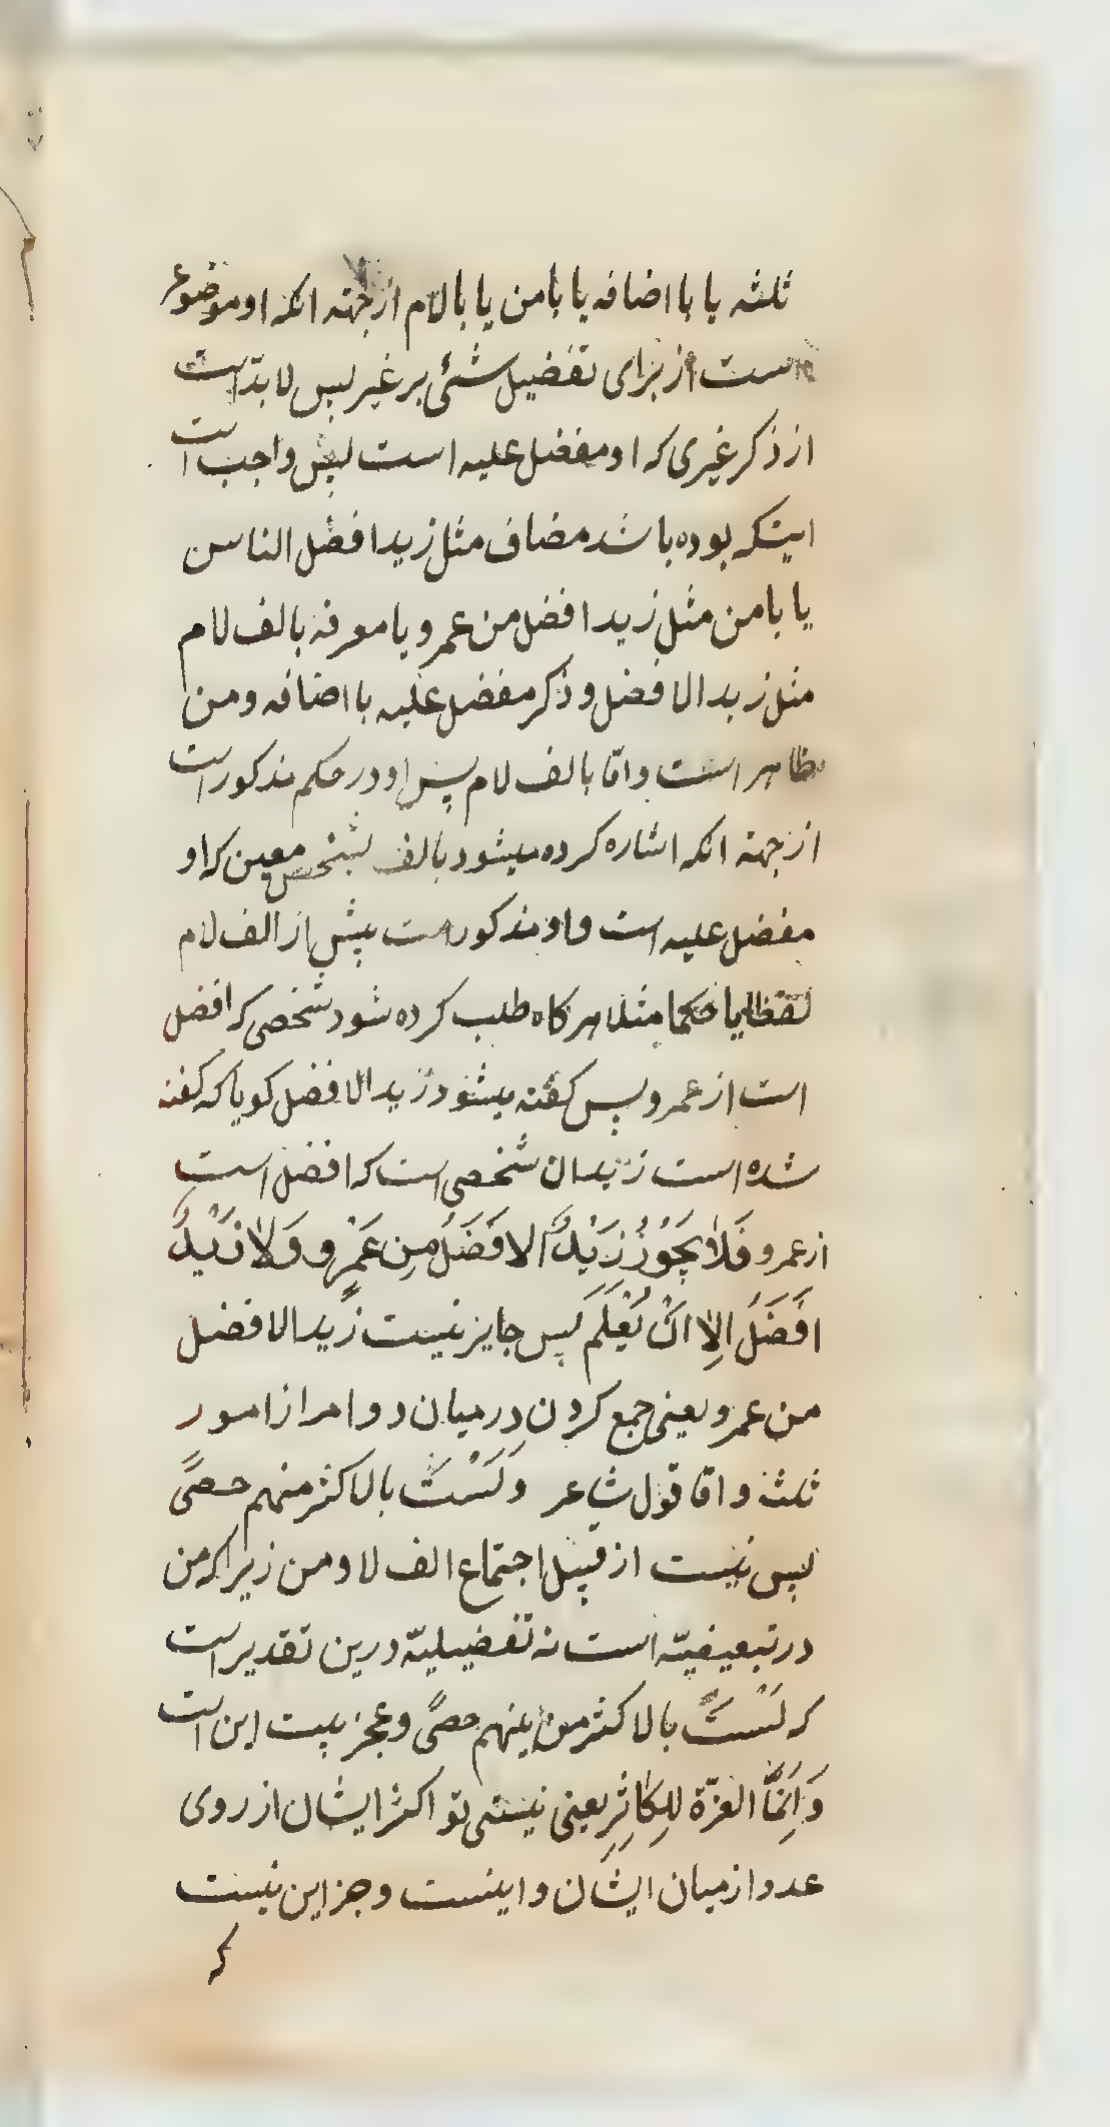 ثلثه یا با اضافه یا بامن یا بالام از جهته انکه او موضوع
است از برای تفضیل شئی بر غیر پس لابدّ است
از ذکر غیری که او مفضل علیه است پس واجب است
اینکه بوده باشد مضاف مثل زید افضل الناس
یا بامن مثل زید افضل من عمرو یا معرفه بالف لام
مثل زید الافضل و ذکر مفضل علیه با اضافه و من
ظاهر است و امّا بالف لام پس او در حکم مذکور است
از جهته انکه اشاره کرده میشود بالف بشخص معین که او
مفضل علیه است و او مذکور است پیش از الف لام
لفظا یا حکما مثلا هر کاه طلب کرده شود شخصی که افضل
است از عمرو پس کفته میشود زید الافضل کویا که کفته
شده است زید ان شخصی است که افضل است
از عمرو فَلا یَجُوزُ زَیْدٌ الافَضَلُ مِن عَمْرٍو وَلا زَیْدٌ
افَضَلُ اِلا انْ یُعْلَم پس جایز نیست زید الافضل
من عمرو یعنی جمع کردن در میان دو امر از امور
ثلثه و امّا قول شاعر وَلَسْتَ بالاکثر منهم حصیً
پس نیست از قبیل اجتماع الف لا و من زیرا که من
در تبعیضیّه است نه تفضیلیّه درین تقدیر است
که لَسْتَ بالاکثر من بینهم حصیً و عجز بیت این است
وَاِنَمَّا العزّة لِلکاثِرِ یعنی نیستی تو اکثر ایشان از روی
عدد از میان ایشان و اینست و جز این نیست
که